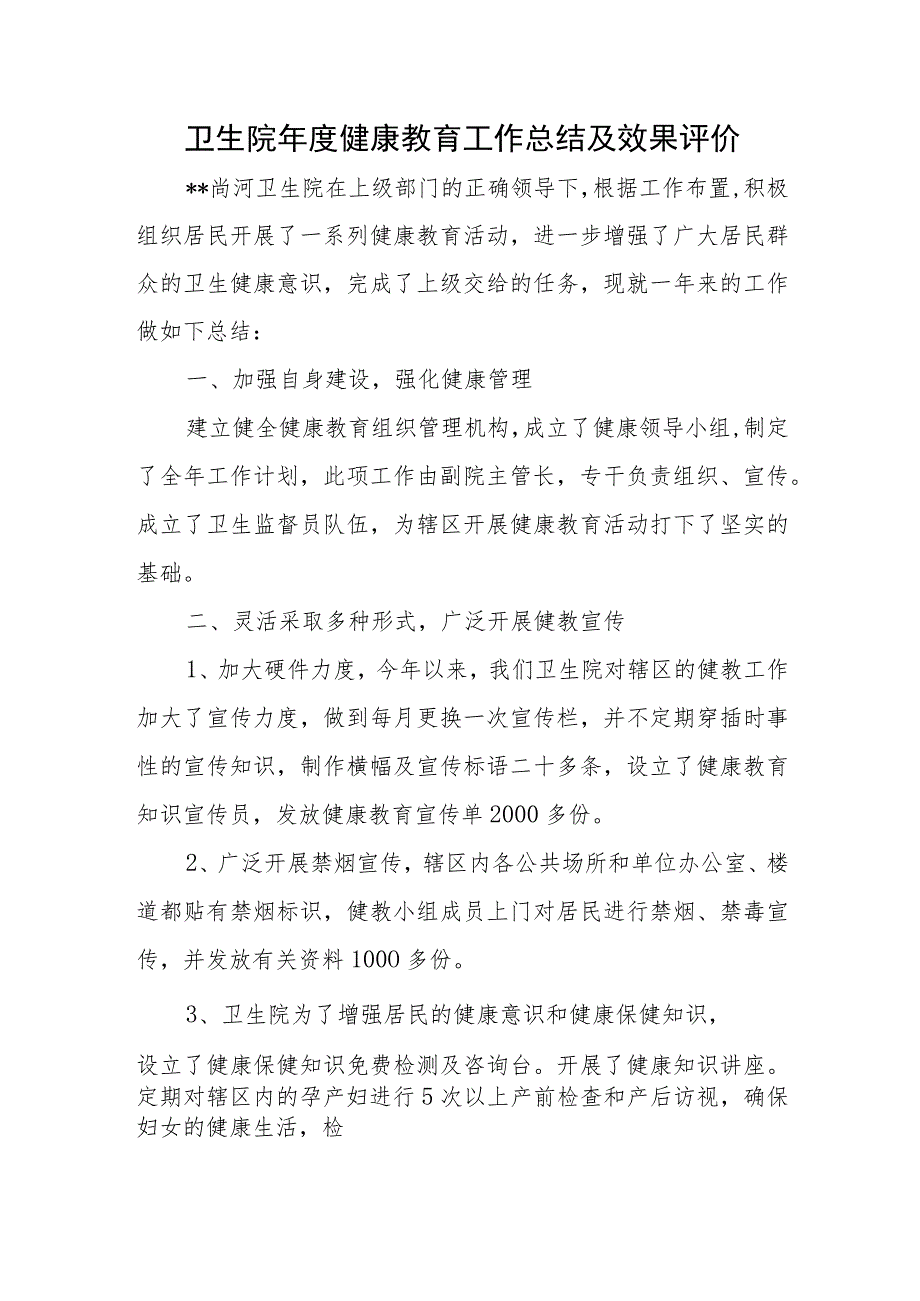 卫生院年度健康教育工作总结及效果评价
**尚河卫生院在上级部门的正确领导下,根据工作布置,积极
组织居民开展了一系列健康教育活动，进一步增强了广大居民群
众的卫生健康意识，完成了上级交给的任务，现就一年来的工作
做如下总结：
一、加强自身建设，强化健康管理
建立健全健康教育组织管理机构,成立了健康领导小组,制定
了全年工作计划，此项工作由副院主管长，专干负责组织、宣传。
成立了卫生监督员队伍，为辖区开展健康教育活动打下了坚实的
基础。
二、灵活采取多种形式，广泛开展健教宣传
1、加大硬件力度，今年以来，我们卫生院对辖区的健教工作
加大了宣传力度，做到每月更换一次宣传栏，并不定期穿插时事
性的宣传知识，制作横幅及宣传标语二十多条，设立了健康教育
知识宣传员，发放健康教育宣传单2000多份。
2、广泛开展禁烟宣传，辖区内各公共场所和单位办公室、楼
道都贴有禁烟标识，健教小组成员上门对居民进行禁烟、禁毒宣
传，并发放有关资料100O多份。
3、卫生院为了增强居民的健康意识和健康保健知识，
设立了健康保健知识免费检测及咨询台。开展了健康知识讲座。
定期对辖区内的孕产妇进行5次以上产前检查和产后访视，确保
妇女的健康生活，检